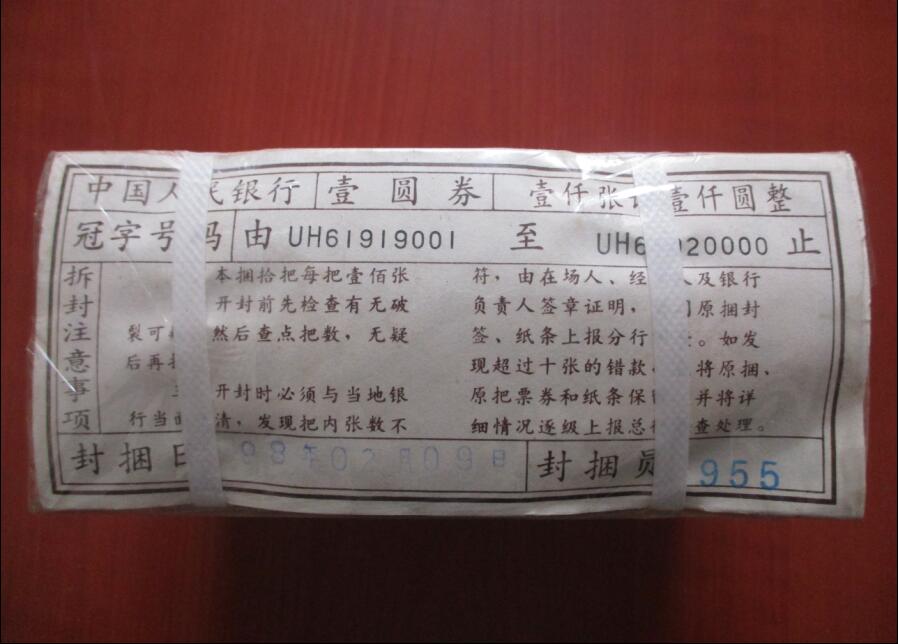 中国人民银行 壹圆券 壹仟张 壹仟圆整
冠字号码 由 UH61919001 至 UH6 920000 止
拆封注意事项
本捆拾把每把壹佰张
开封前先检查有无破
裂可 然后查点把数，无疑
后再
开封时必须与当地银
行当 清，发现把内张数不
符，由在场人、经 人及银行
负责人签章证明， 原捆封
签、纸条上报分行 。如发
现超过十张的错款， 将原捆、
原把票券和纸条保 并将详
细情况逐级上报总 查处理。
封捆日 98年02月09日 封捆员 955